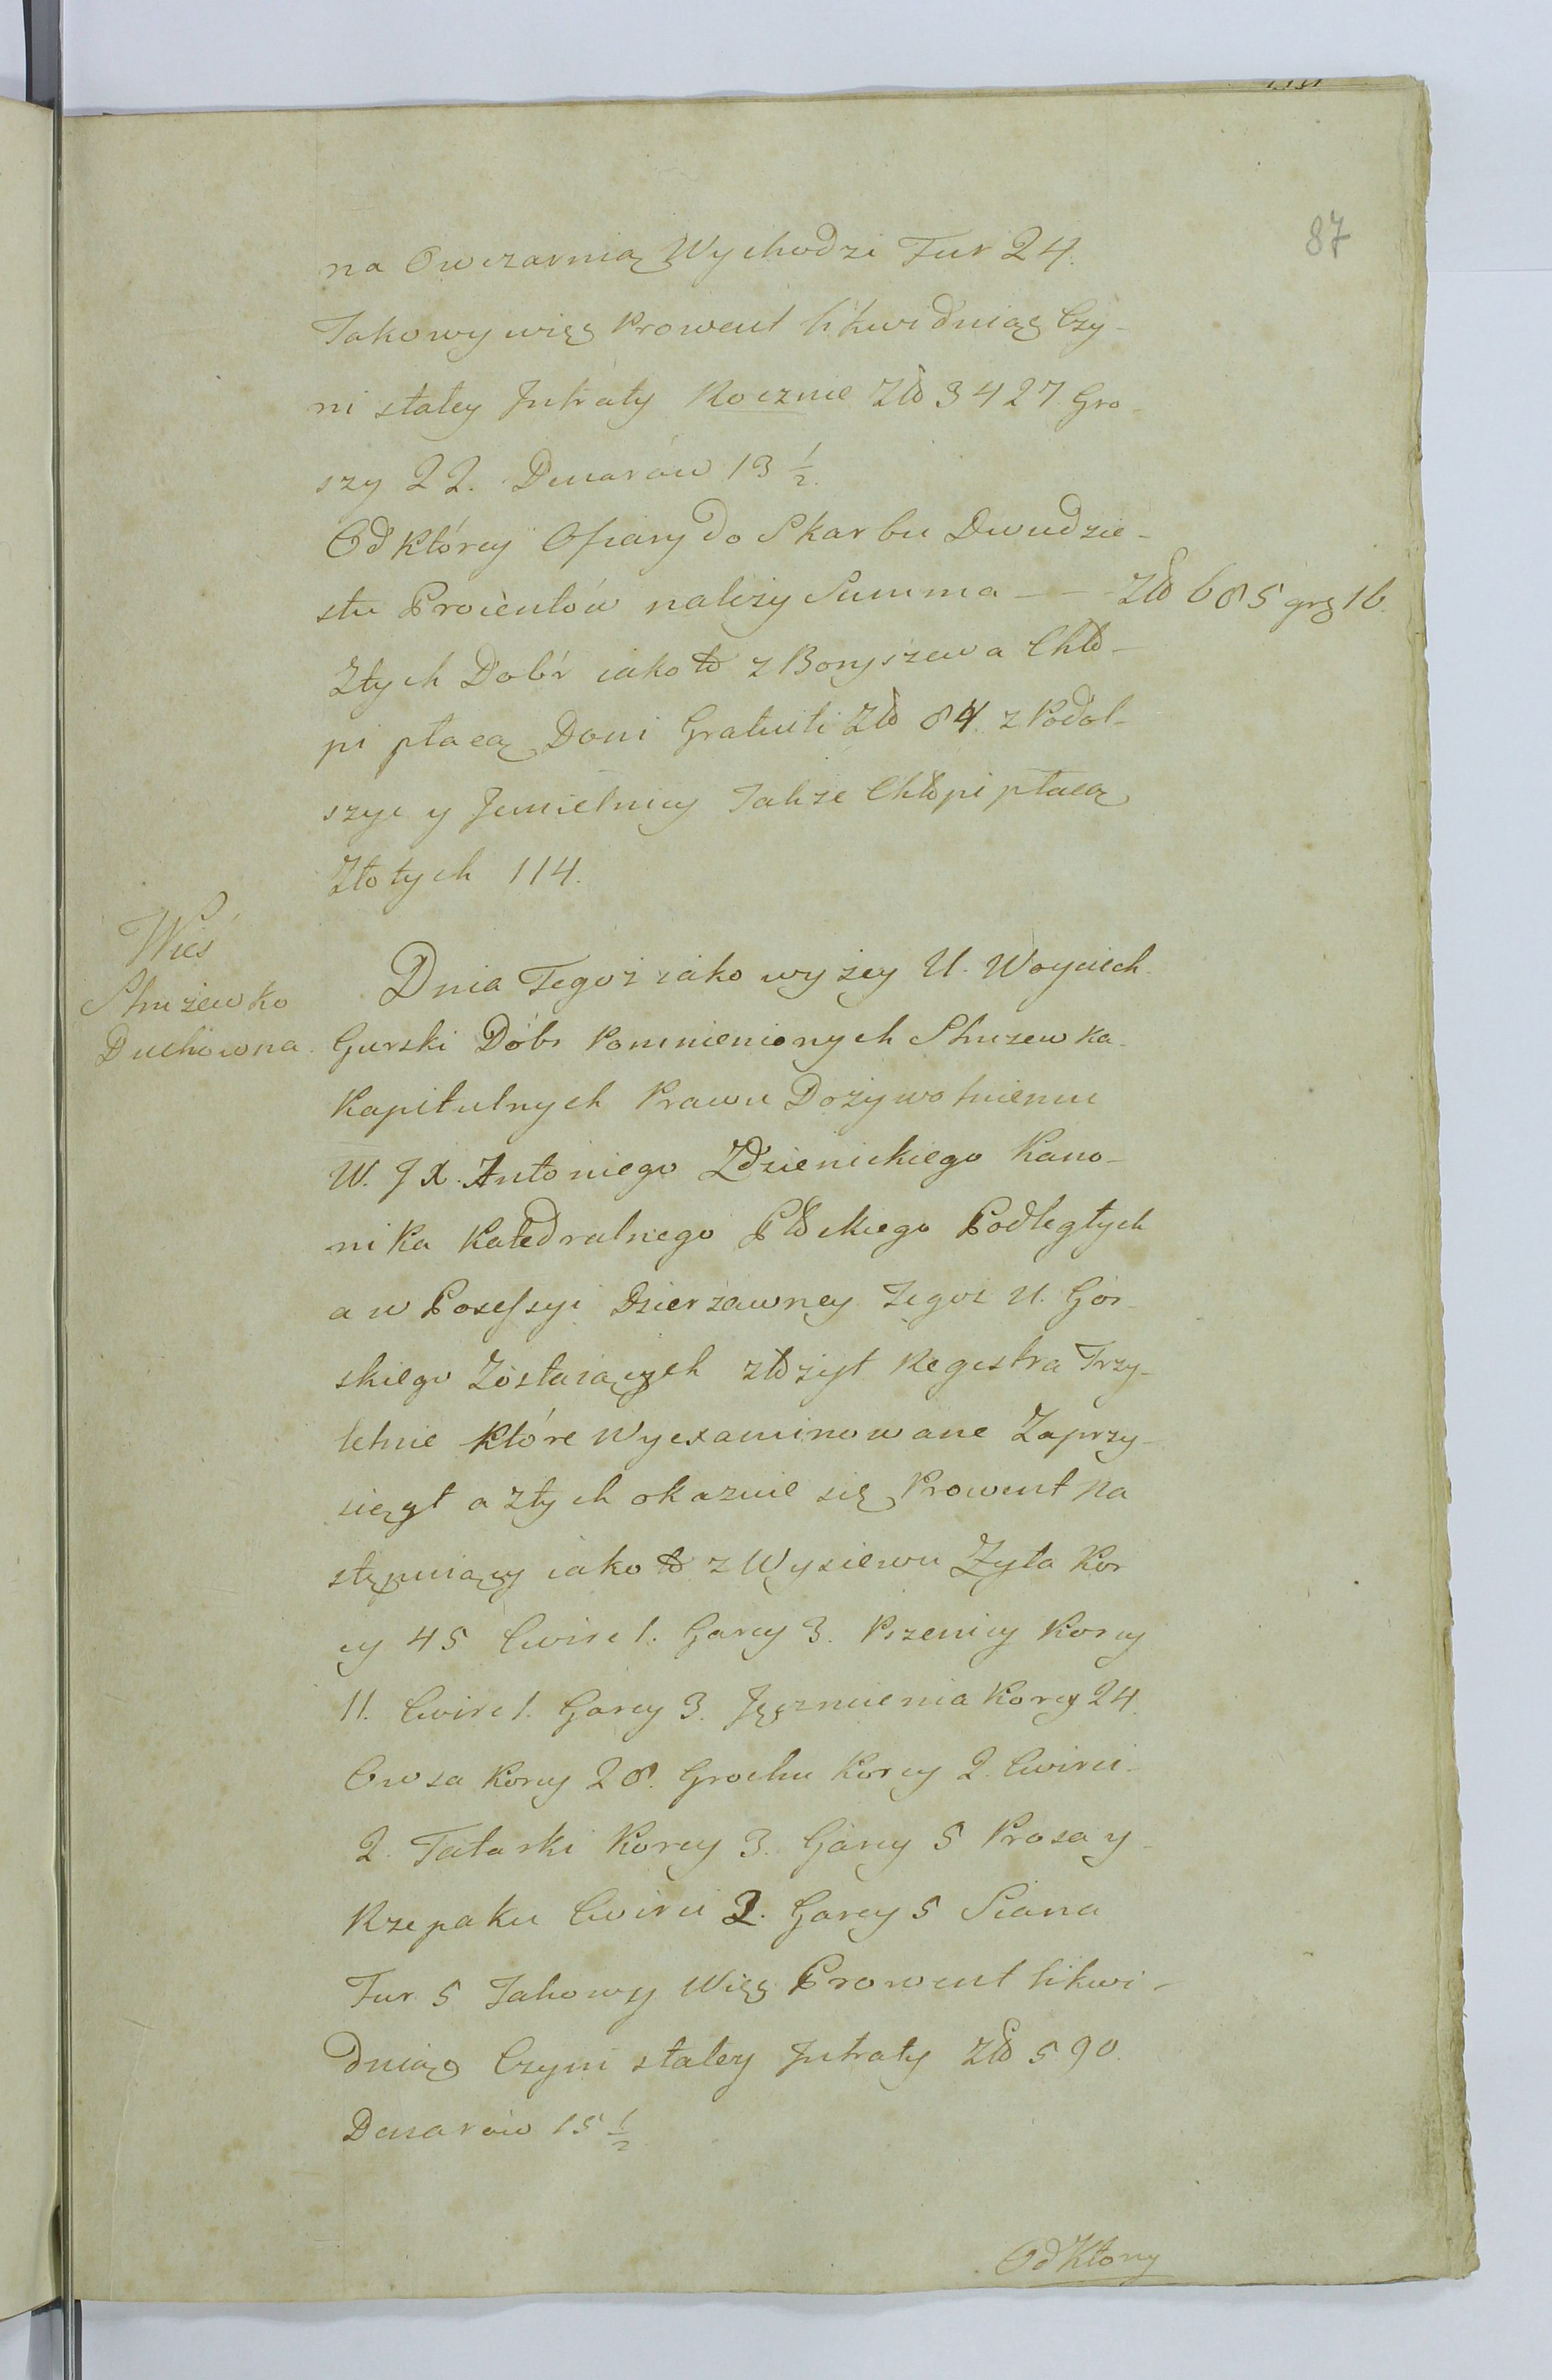 87
na Owczarnią Wychodzi Fur 24.
Takowy więc Prowent likwiduiąc Czy-
ni stałey Jntraty Rocznie Złł 3427 Gro-
szy 22. Denarów 13 1/2.
Od którey Ofiary do Skarbu Dwudzie-
stu Procentów należy Summa — — Złł 685 grz 16.
Ztych Dobr iakoto z Boryszewa Chło-
pi płacą Doni Gratuiti Złł 84. z Podol-
szyc y Jmielnicy Takze Chłopi płacą
Złotych 114.
Wieś
Strużewko
Duchowna.
Dnia Tegoż iako wyżey U. Woyciech
Gurski Dóbr Pomnienionych Struzewka
Kapitulnych Prawu Dożywotniemu
W. JX. Antoniego Zdzienickiego Kano-
nika Katedralnego Płockiego Podległych
a w Posessyi Dzierżawney Tegoż U. Gór-
skiego Zostaiących złożył Regestra Trzy-
letnie które Wyexaminowane Zaprzy-
siągł a ztych okazuie się Prowent na
stępuiący iakoto z Wysiewu Zyta Kor
cy 45 Cwierć 1. Garcy 3. Pszenicy Korcy
11. Cwierć 1. Garcy 3. Jęczmienia Korcy 24.
Owsa Korcy 28. Grochu Korcy 2. Cwierci
2. Tatarki Korcy 3. Garcy 5 Prosa y
Rzepaku Cwierci 2. Garcy 5 Siana
Fur 5 Takowy Więc Prowent likwi-
duiąc Czyni stałey Jntraty Złł 590.
Denarów 15 1/2
Od Ktory